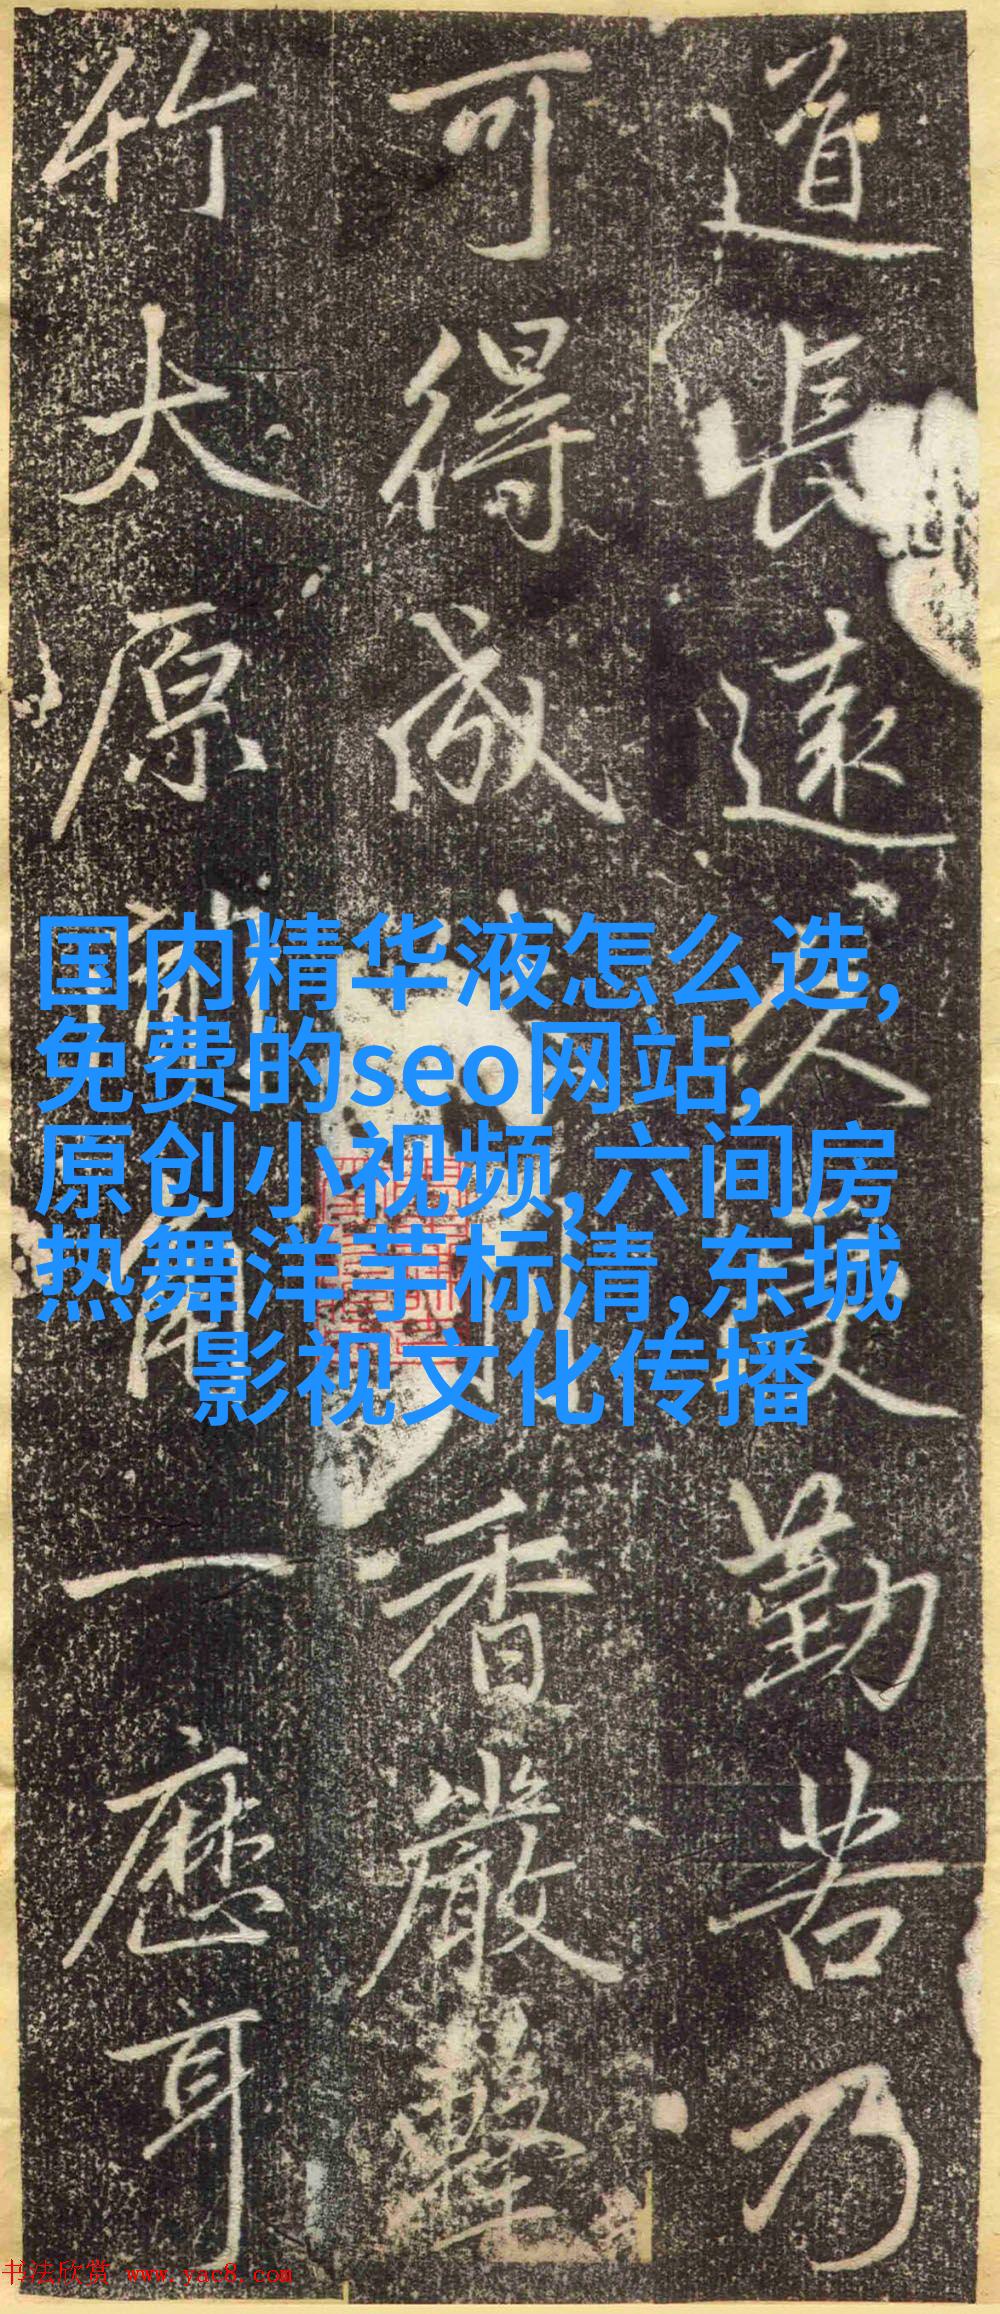 道長遠久受勤苦乃
可得成香嚴擊
竹太原一應耳
国内精华液怎么选,
免费的seo网站,
原创小视频,六间房
热舞洋芋标清,东城
影视文化传播
书法欣赏 www.yac8.com